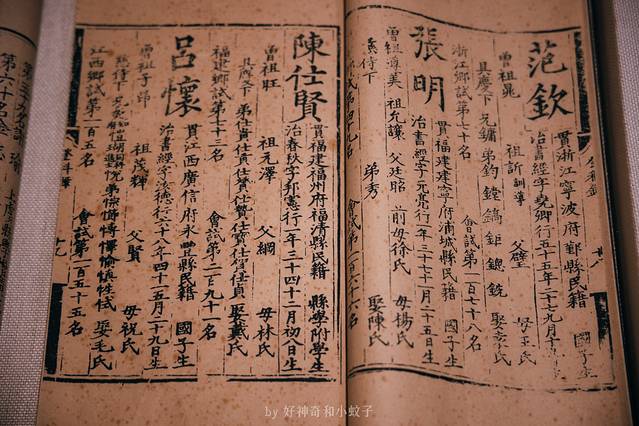 范欽
貫浙江寧波府鄞縣民籍
國子生
治書經字堯卿行五十五年二十九月十
曾祖晃
祖訢訓導
父璧
母王氏
具慶下
兄鏞
弟鈞
鏜
鎬
鉅
鏓
銃
娶袁氏
浙江鄉試第七十名
會試第一百七十八名
張明
貫福建建寧府浦城縣民籍
國子生
治書經字元亮行一年三十七十一月二十五日生
曾祖尊美
祖允讓
父廷昭
前母徐氏
母楊氏
慈侍下
弟秀
娶陳氏
陳仕賢
貫福建福州府福清縣民籍
縣學附學生
治春秋字邦憲行一年三十四十二月初八日生
曾祖旺
祖元澤
父綱
母林氏
具慶下
娶戴氏
福建鄉試第二十三名
會試第二百九十一名
呂懷
貫江西廣信府永豐縣民籍
國子生
治書經字汝德行二十八年四十五月二十九日生
曾祖子昂
祖茂輝
父賢
母祝氏
慈侍下
娶毛氏
江西鄉試第一百五名
會試第一百五十五名
by 好神奇和小蚊子